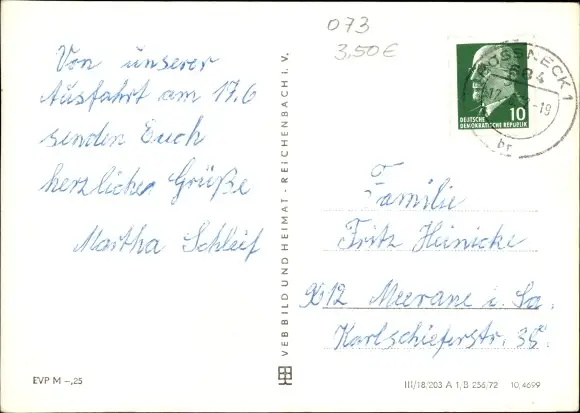 073
3,50€
Von unserer
Ausfahrt am 17.6
senden Euch
herzliche Grüße
Martha Schleif
VEB BILD UND HEIMAT · REICHENBACH I. V.
PÖSSNECK 1
684
-18
br
10
DEUTSCHE
DEMOKRATISCHE REPUBLIK
Familie
Fritz Heinicke
9612 Meerane i. Sa.
Karlschieferstr. 35
EVP M –,25
III/18/203 A 1/B 256/72 10,4699